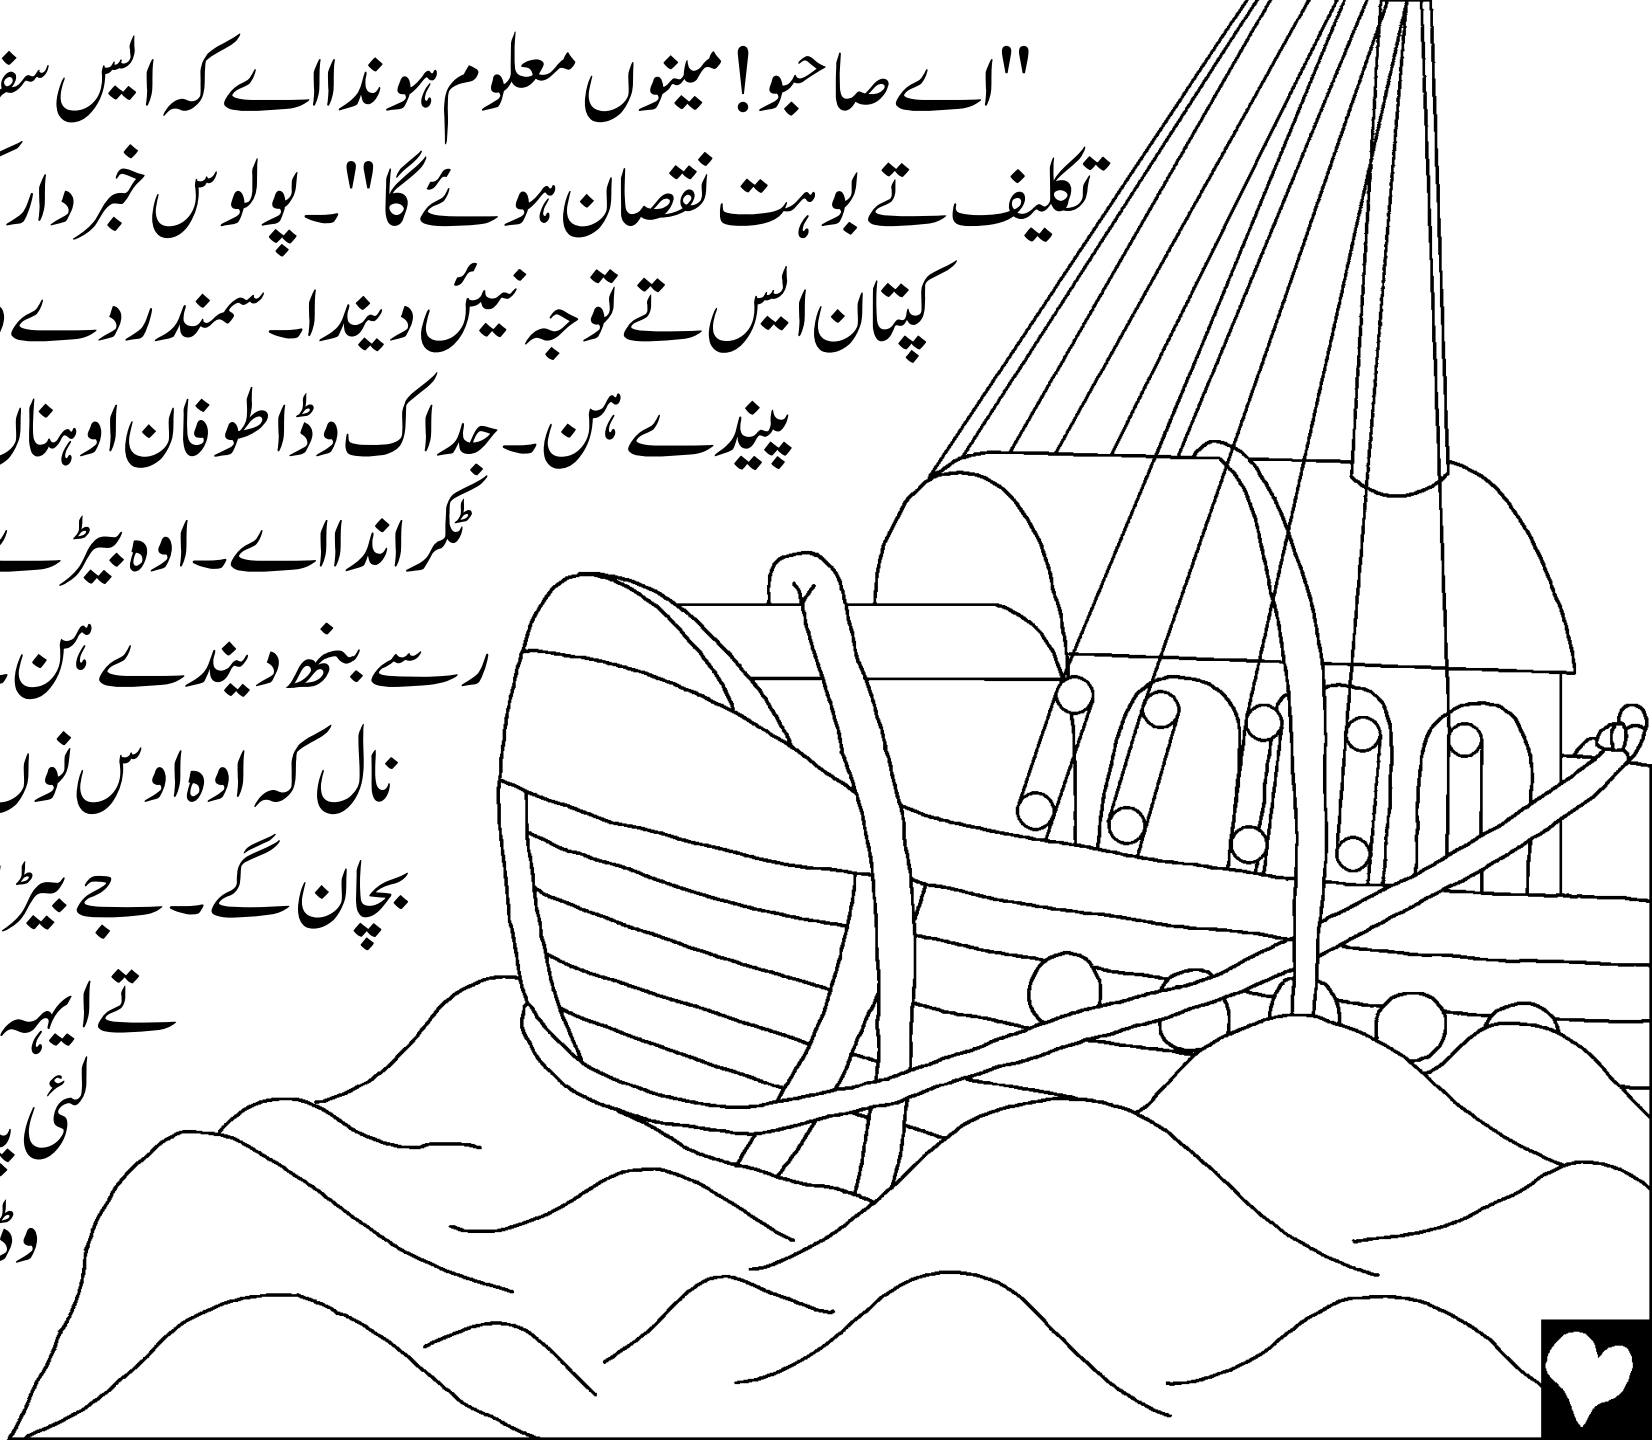 "اے صاحبو! مینوں معلوم ہوندا اے کہ ایس
تکلیف تے بوہت نقصان ہوئے گا"۔ پولوس خبردار
کپتان ایس تے توجہ نیئں دیندا۔ سمندر دے
پیندے ہن۔ جد اک وڈا طوفان اوہناں
ٹکراندا اے۔ اوہ بیڑے
رسے بنھ دیندے ہن۔
نال کہ اوہ اوس نوں
بچان گے۔ جے بیڑ
تے ایہہ
لئی
وڈ